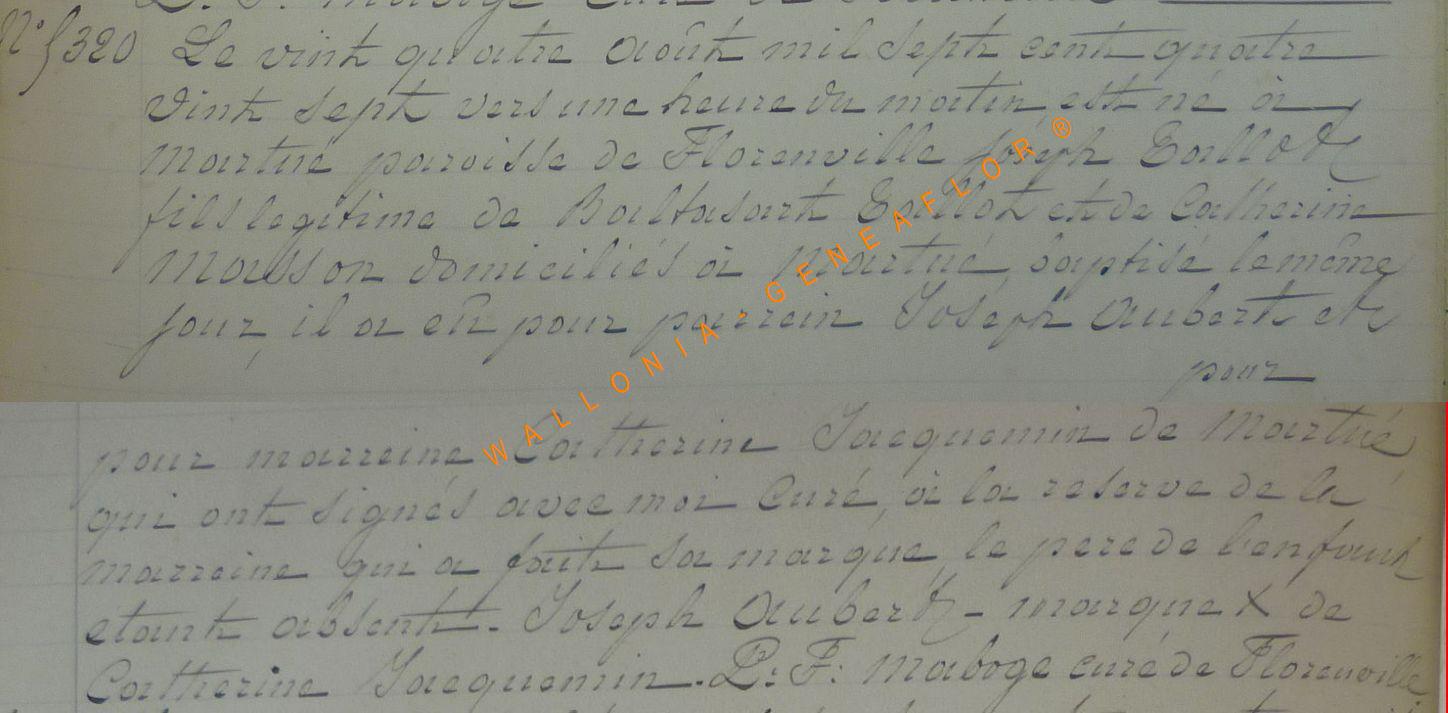 N° 320 Le vint quatre août mil sept cent quatre
vint sept vers une heure du matin est né à
Martué paroisse de Florenville Joseph Gallot
fils legitime de Baltasart Gallot et de Catherine
Masson domiciliés à Martué, baptisé le même
jour, il a eû pour parrein Joseph Aubert et
pour
pour marreine Catherine Jacquemin de Martué
qui ont signés avec moi Curé, à la reserve de la
marreine qui a fait sa marque, le pere de l'enfant
etant absent. Joseph Aubert - marque X de
Catherine Jacquemin. P. F. Maboge curé de Florenville
WALLONIA - GENEAFLOR ®